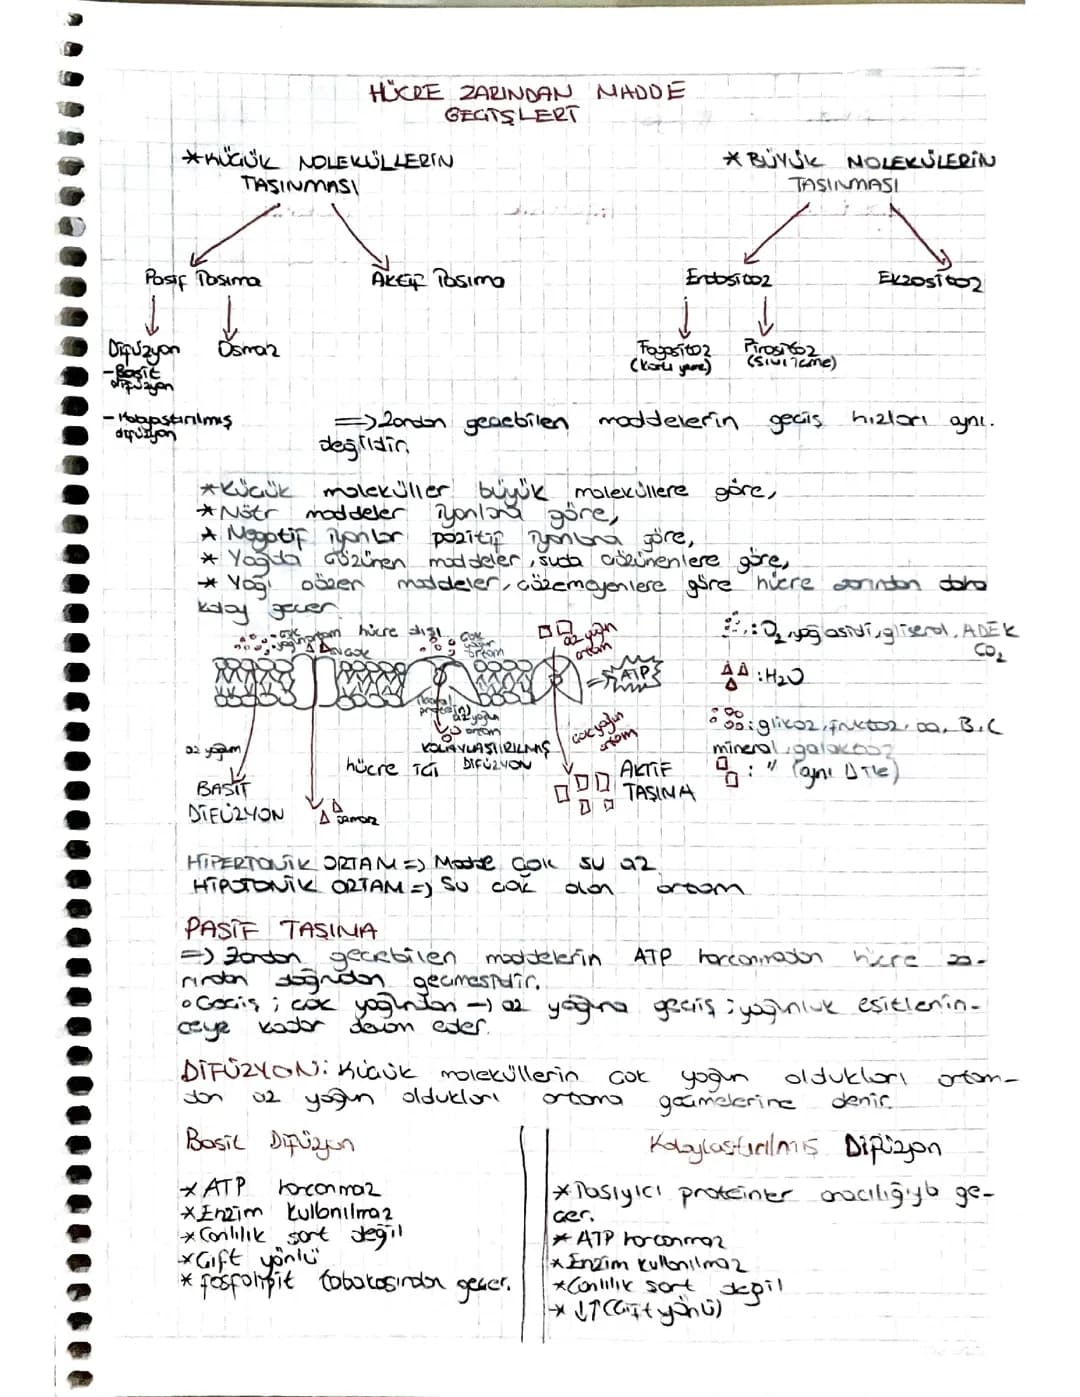 HÜCRE ZARINDAN MADDE
GEÇİŞLERİ
*KÜÇÜK MOLEKÜLLERİN
TAŞINMASI
*BÜYÜK MOLEKÜLERİN
TAŞINMASI
Pasif Taşıma
Aktif Taşıma
Endositoz
Ekzositoz
Difüzyon
Osmoz
Fagositoz
(katı yeme)
Pinositoz
(sıvı içme)
-Basit
difüzyon
-Kolaylaştırılmış
difüzyon
=> Zardan geçebilen maddelerin geçiş hızları aynı
değildir.
*Küçük moleküller büyük moleküllere göre,
*Nötr maddeler iyonlara göre,
*Negatif iyonlar pozitif iyonlara göre,
* Yağda çözünen maddeler, suda çözünenlere göre,
* Yağı çözen maddeler, çözemeyenlere göre hücre zarından daha
kolay geçer
çok yoğun ortam
hücre dışı
çok yoğun ortam
az yoğun
ortam
: O2, yağ asidi, gliserol, ADEK
CO2
ATP
: H2O
az yoğun
ortam
çok yoğun
ortam
: glikoz, früktoz, aa, B,C
mineral, galaktoz
: " (aynı ATP ile)
az yoğun
hücre içi
KOLAYLAŞTIRILMIŞ
DİFÜZYON
BASİT
DİFÜZYON
osmoz
AKTİF
TAŞINA
HİPERTONİK ORTAM => Madde çok su az
HİPOTONİK ORTAM => Su çok olan ortam
PASİF TAŞIMA
=> Zardan geçebilen maddelerin ATP harcanmadan hücre za-
rından doğrudan geçmesidir.
• Geçiş ; çok yoğundan → az yoğuna geçiş ; yoğunluk eşitlenin-
ceye kadar devam eder.
DİFÜZYON: Küçük moleküllerin çok yoğun oldukları ortam-
dan az yoğun oldukları ortama geçmelerine denir.
Basit Difüzyon
* ATP harcanmaz
*Enzim kullanılmaz
*Canlılık şart değil
*Çift yönlü
* fosfolipit tabakasından geçer.
Kolaylaştırılmış Difüzyon
*Taşıyıcı proteinler aracılığıyla ge-
çer.
* ATP harcanmaz
*Enzim kullanılmaz
*Canlılık şart değil
* ↓↑ (Çift yönlü)